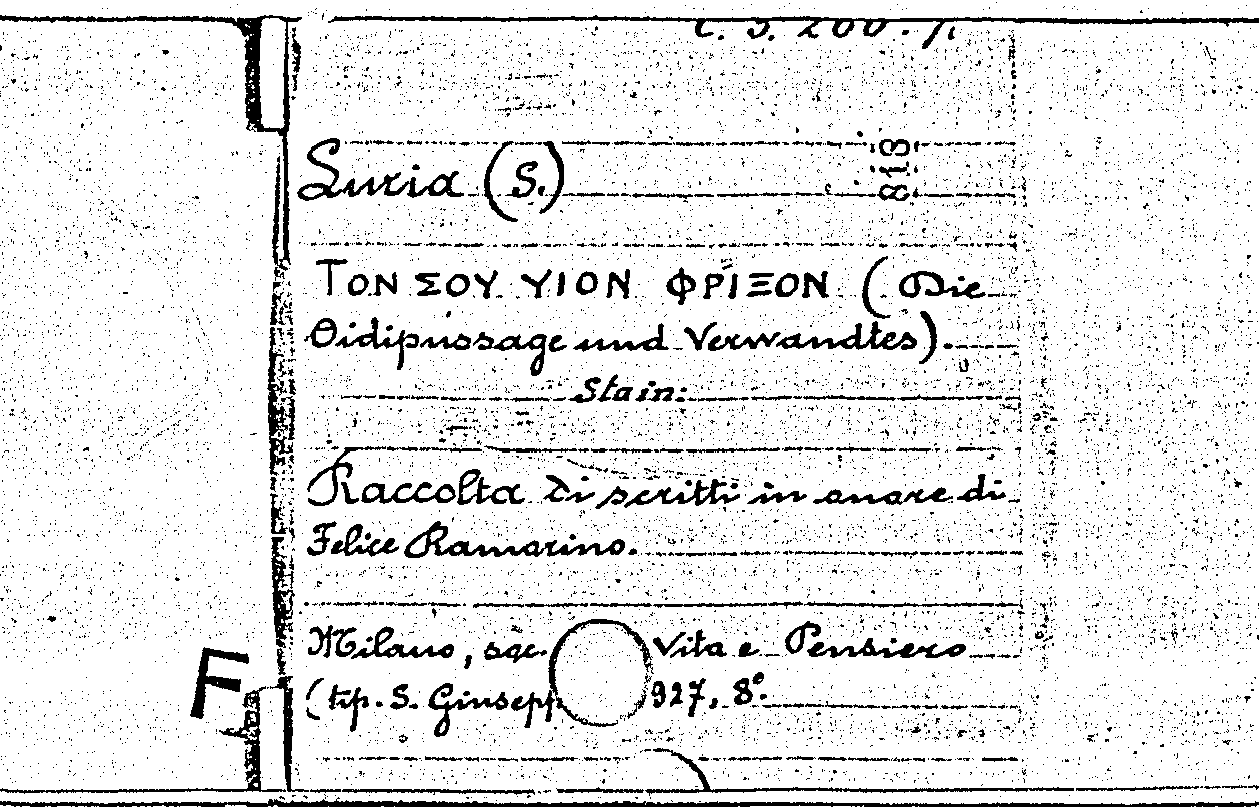 C. S. 200. f.
Luria (S.)
818
ΤΟΝ ΣΟΥ ΥΙΟΝ ΦΡΙΞΟΝ (Die
Oidipussage und Verwandtes).
Sta in:
Raccolta di scritti in onore di
Felice Ramorino.
Milano, soc. Vita e Pensiero
(tip. S. Giusepp 927, 8°.
F